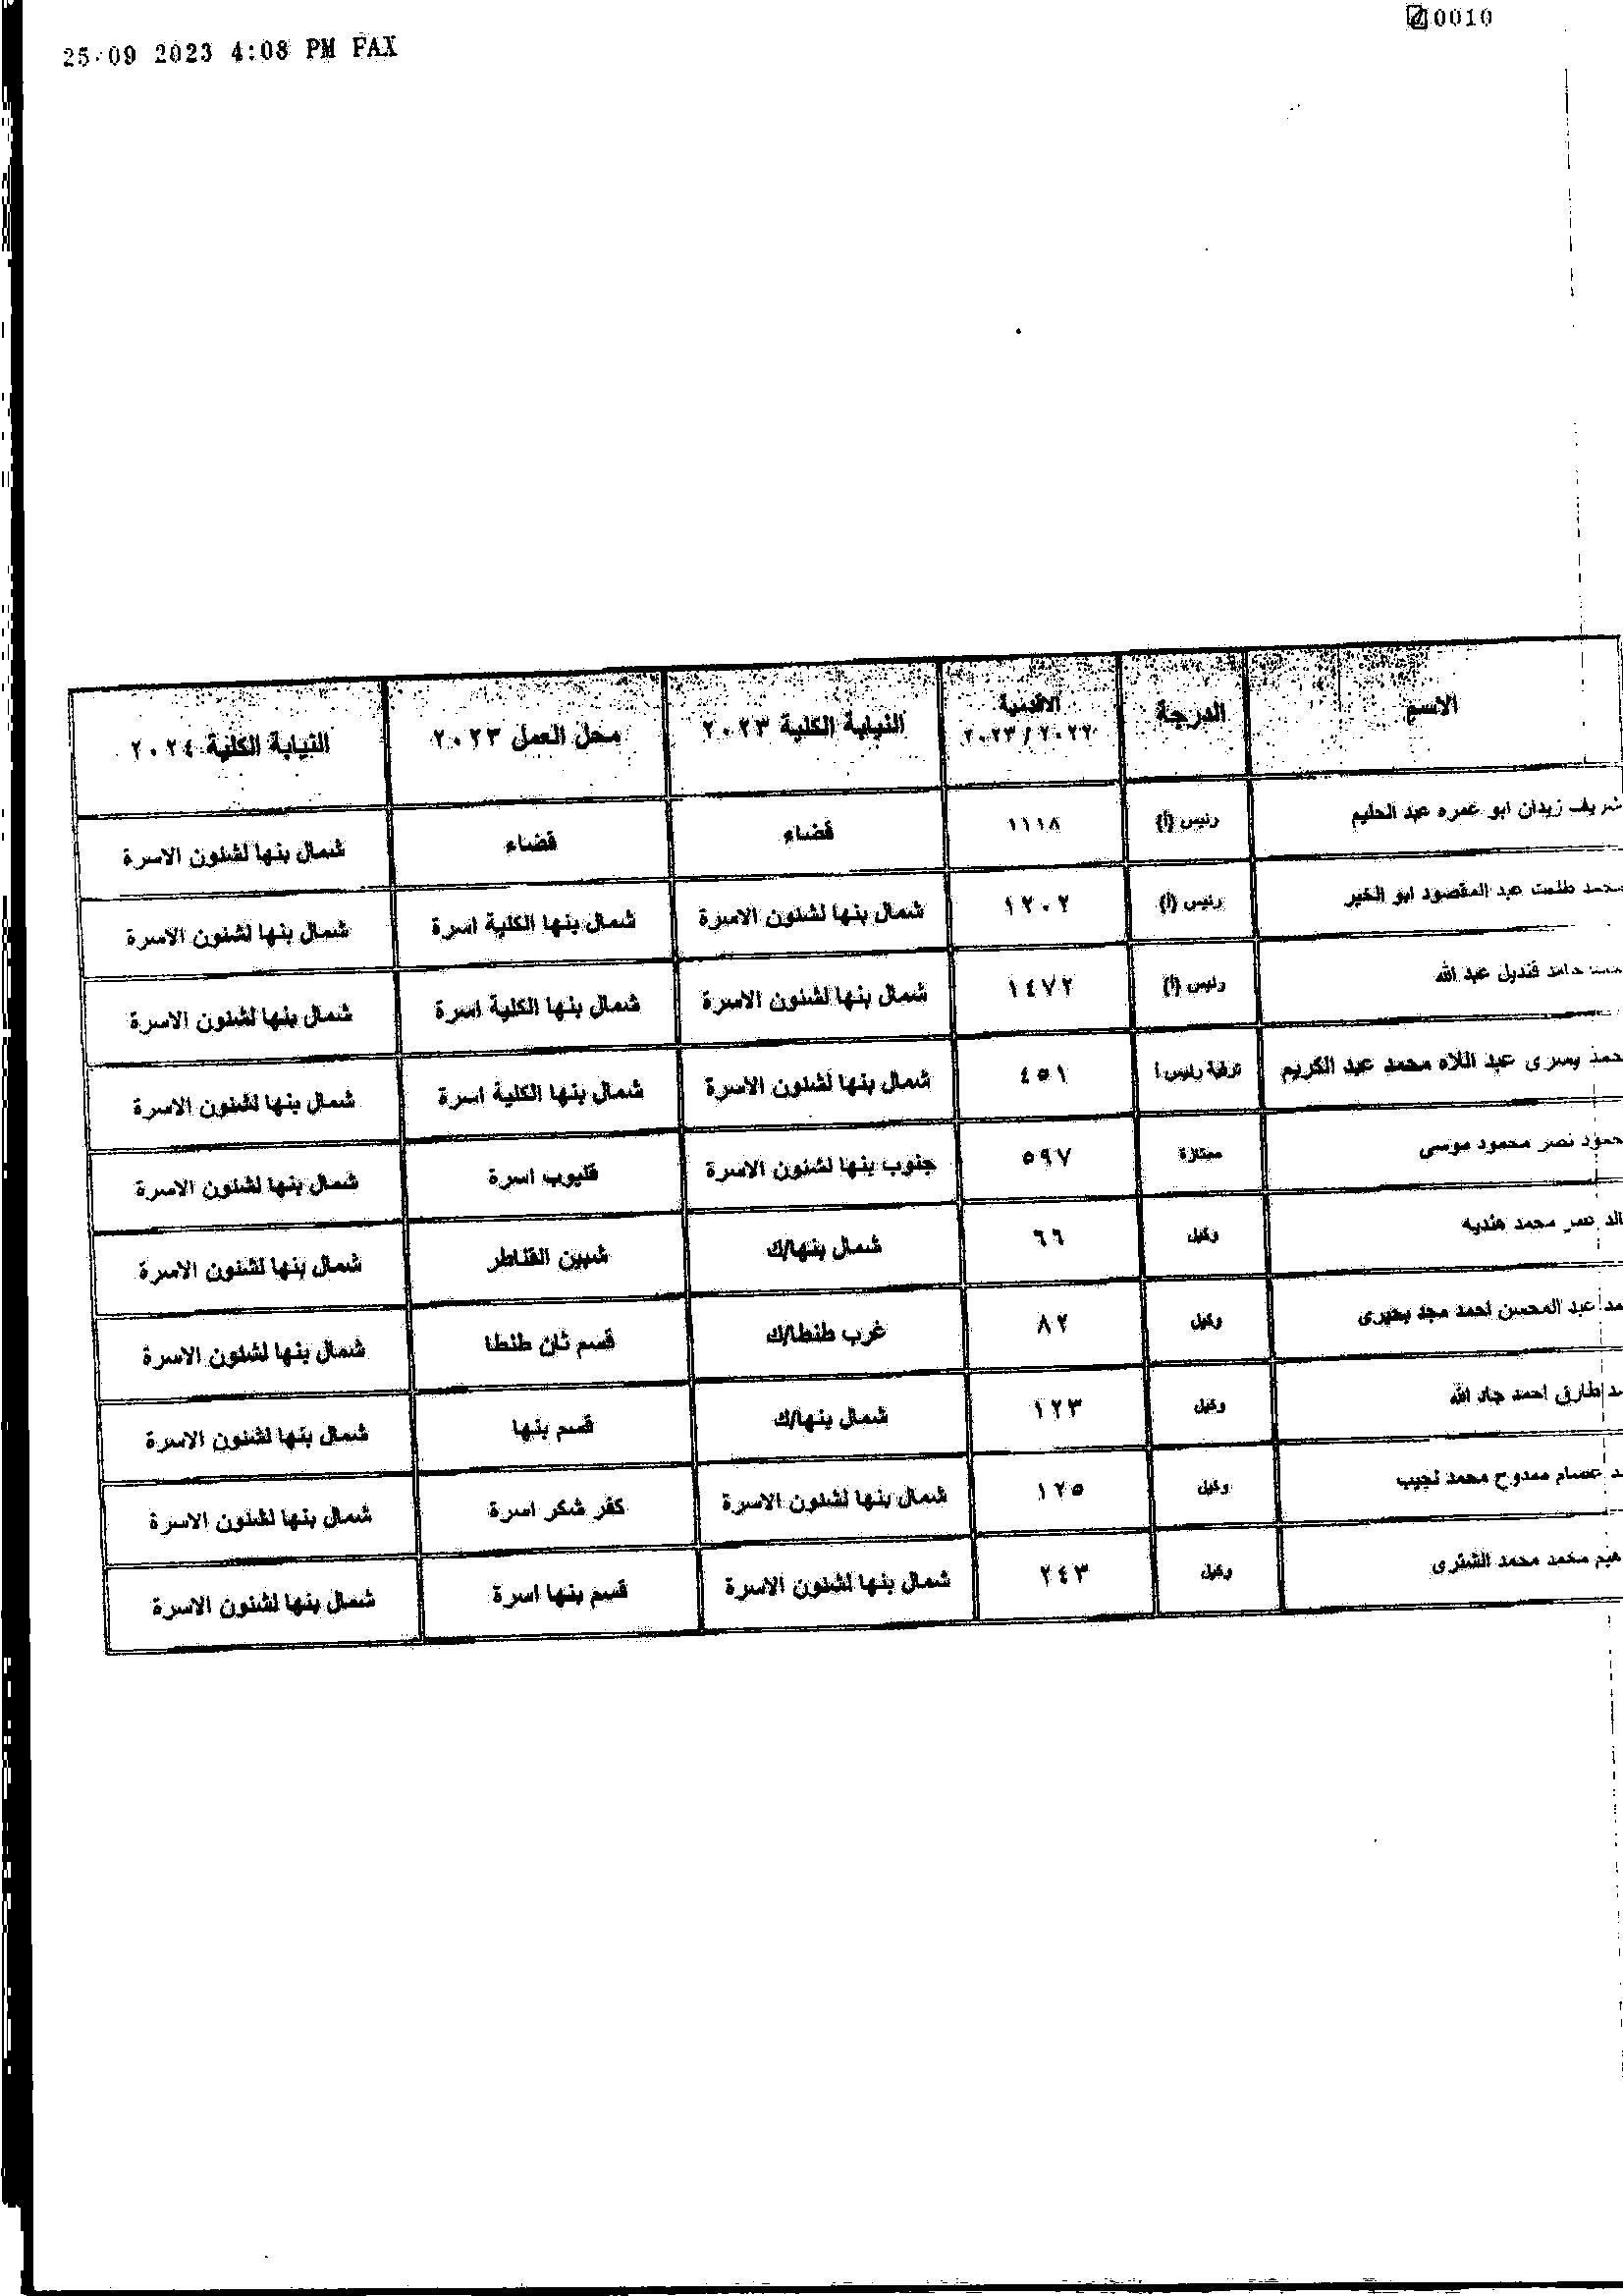 25/09 2023 4:08 PM FAX
0010
الاسم الدرجة الاقدمية ٢٠٢٣/٢٠٢٢ النيابة الكلية ٢٠٢٣ محل العمل ٢٠٢٣ النيابة الكلية ٢٠٢٤
شريف زيدان ابو عمره عبد الحليم رئيس (أ) ١١١٨ قضاء قضاء شمال بنها لشئون الاسرة
طلعت عبد المقصود ابو الخير رئيس (أ) ١٢٠٢ شمال بنها لشئون الاسرة شمال بنها الكلية اسرة شمال بنها لشئون الاسرة
حامد قنديل عبد الله رئيس (أ) ١٤٧٢ شمال بنها لشئون الاسرة شمال بنها الكلية اسرة شمال بنها لشئون الاسرة
يسرى عبد اللاه محمد عبد الكريم ترقية رئيس أ ٤٥١ شمال بنها لشئون الاسرة شمال بنها الكلية اسرة شمال بنها لشئون الاسرة
نصر محمود موسى ممتازة ٥٩٧ جنوب بنها لشئون الاسرة قليوب اسرة شمال بنها لشئون الاسرة
محمد هنديه وكيل ٦٦ شمال بنها/ك شبين القناطر شمال بنها لشئون الاسرة
عبد المحسن احمد مجد بحيرى وكيل ٨٢ غرب طنطا/ك قسم ثان طنطا شمال بنها لشئون الاسرة
طارق احمد جاد الله وكيل ١٢٣ شمال بنها/ك قسم بنها شمال بنها لشئون الاسرة
عصام ممدوح محمد نجيب وكيل ١٢٥ شمال بنها لشئون الاسرة كفر شكر اسرة شمال بنها لشئون الاسرة
محمد محمد الشترى وكيل ٢٤٣ شمال بنها لشئون الاسرة قسم بنها اسرة شمال بنها لشئون الاسرة